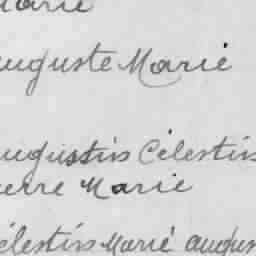 Marie
auguste Marie
augustin Célestin
ierre Marie
élestin Marie augus